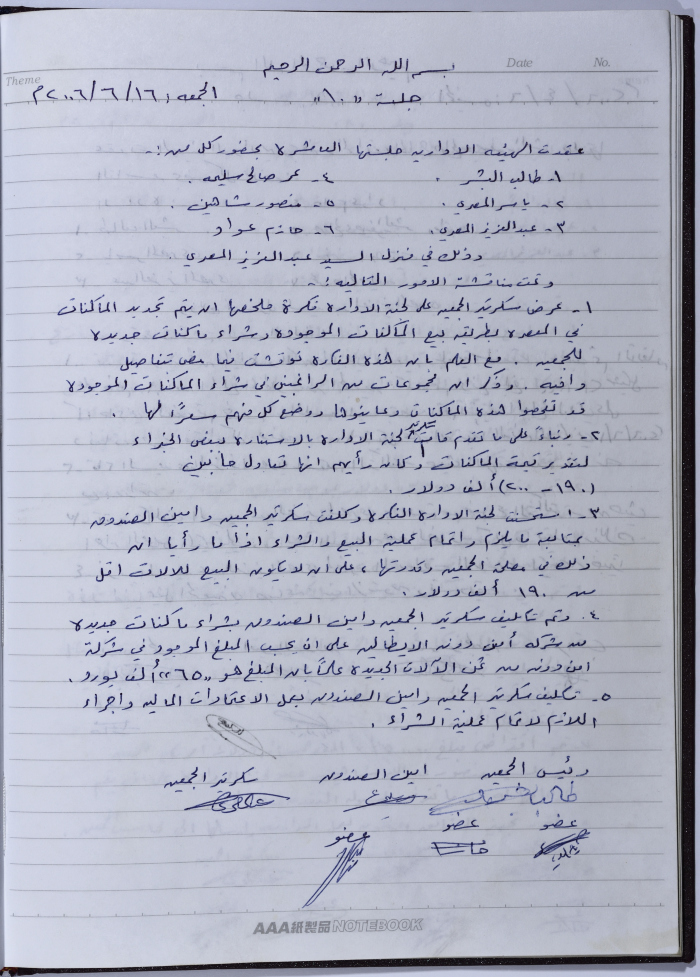 بسم الله الرحمن الرحيم
Theme Date No.
جلسة "١٠" الجمعه: ٢٠٠٦/٦/١٦م
عقدت الهيئه الاداريه جلستها العاشرة بحضور كل من:-
١- طالب البشر. ٤- عمر صالح سليمه.
٢- ياسر المصري. ٥- منصور شاهين.
٣- عبد العزيز المصري. ٦- حازم عواد
وذلك في منزل السيد عبد العزيز المصري.
وتمت مناقشة الامور التاليه:-
١- عرض سكرتير الجمعيه على لجنة الادارة فكرة ملخصها ان يتم تجديد الماكنات
في المعصرة بطريقه بيع الماكنات الموجودة وشراء ماكنات جديدة
للجمعيه. مع العلم بان هذه الفكرة نوقشت فيما مضى تفاصيل
وافيه. وذكر ان مجموعات من الراغبين في شراء الماكنات الموجودة
قد تفحصوا هذه الماكنات وعاينوها ووضع كل منهم سعرًا لها.
٢- وبناءً على ما تقدم قامت لجنة الادارة بالاستنارة لبعض الخبراء
لتقدير قيمة الماكنات وكان رأيهم انها تعادل ما بين
(١٩٠ - ٢٠٠) ألف دولار.
٣- استحسنت لجنة الادارة الفكرة وكلفت سكرتير الجمعيه وامين الصندوق
بمتابعة ما يلزم واتمام عملية البيع والشراء اذا ما رأيا ان
ذلك في مصلحة الجمعيه وقدرتها، على ان لا يكون البيع للالات اقل
من ١٩٠ ألف دولار.
٤- وتم تكليف سكرتير الجمعيه وامين الصندوق بشراء ماكنات جديدة
من شركه أمن دوني الايطاليه على ان يحسب المبلغ الموجود في شركة
امن دوني من ثمن الآلات الجديدة علمًا بان المبلغ هو "٢٦٥" ألف يورو.
٥- تكليف سكرتير الجمعيه وامين الصندوق بعمل الاعتمادات الماليه واجراء
اللازم لاتمام عملية الشراء.
رئيس الجمعيه امين الصندوق سكرتير الجمعيه
عضو عضو عضو
AAA紙製品 NOTEBOOK